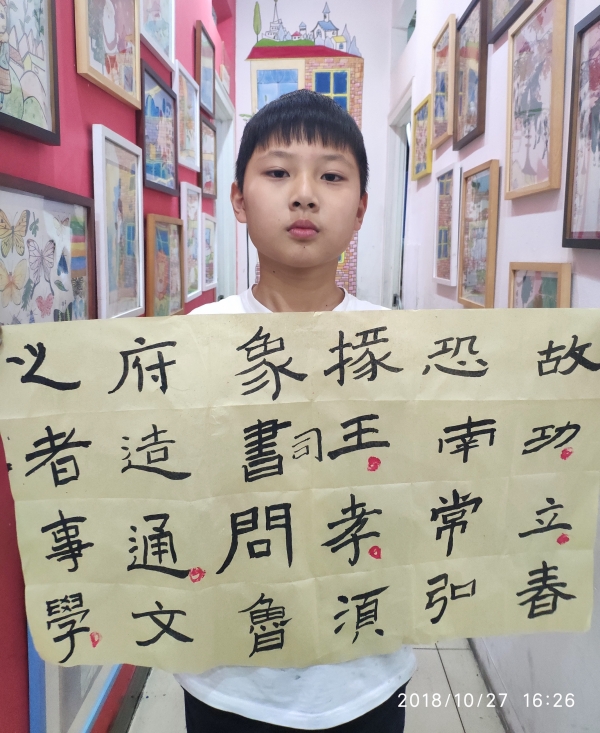 故功立春
恐南常弘
掾王孝須
象書司問魯
府造通文
者事學
2018/10/27 16:26